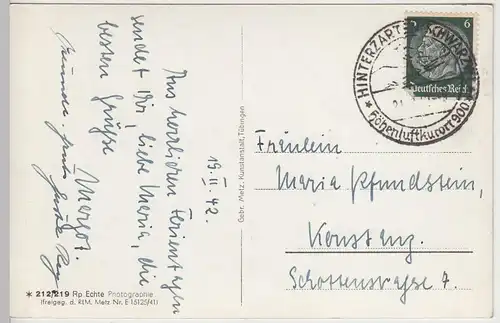 19.II.42.
Aus herrlichen Ferientagen
sendet Dir, liebe Maria, die
besten Grüße
Margot.
Gebr. Metz, Kunstanstalt, Tübingen
HINTERZARTEN SCHWARZW
* Höhenluftkurort 900
6
Deutsches Reich
Fräulein
Maria Pfundstein,
Konstanz.
Schottenstraße 7.
* 212/219 Rp Echte Photographie
(freigeg. d. RLM. Metz Nr. E 15125/41)